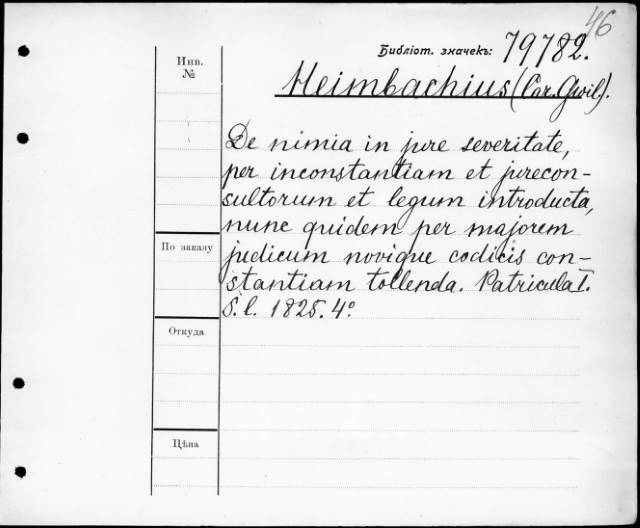 46
Библіот. значекъ: 79782.
Инв. №
Heimbachius (Car. Gwil.).
De nimia in jure severitate,
per inconstantiam et jurecon-
sultorum et legum introducta,
nunc quidem per majorem
По заказу
judicum novique codicis con-
stantiam tollenda. Patricula I.
S. l. 1825. 4º
Откуда
Цѣна